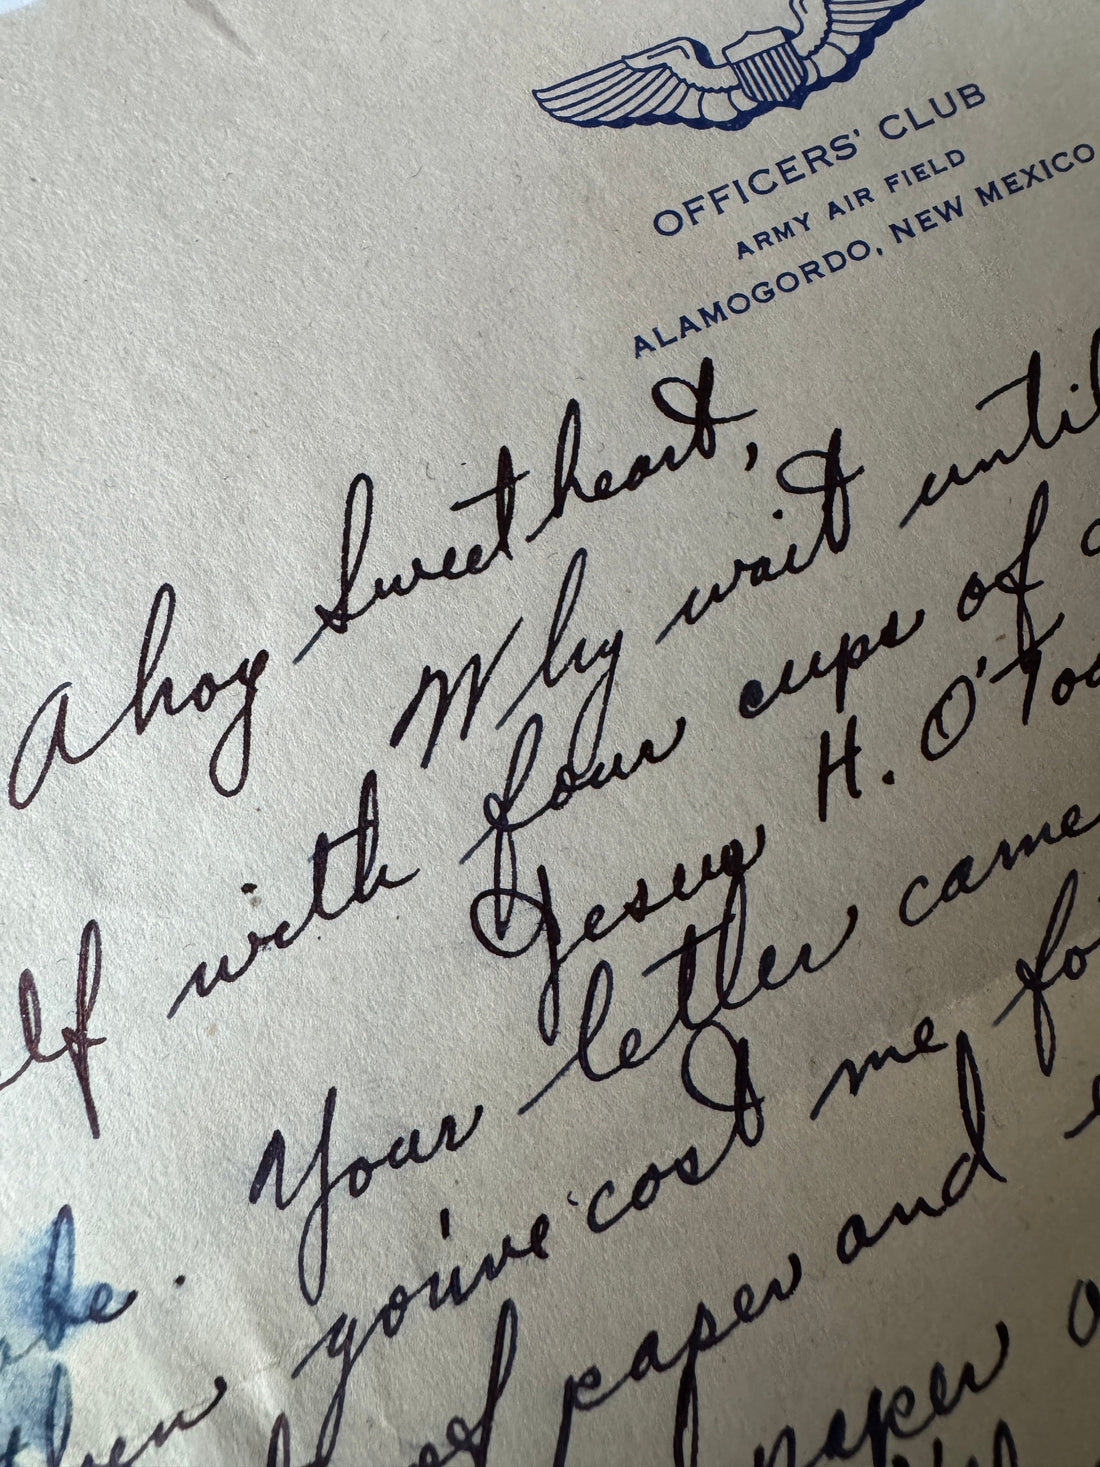 OFFICERS' CLUB
ARMY AIR FIELD
ALAMOGORDO, NEW MEXICO
Ahoy Sweetheart,
Why wait until
elf with four cups of
Jesus H. O'Too
Your letter came
ake. you've cost me fo
then of paper and
paper